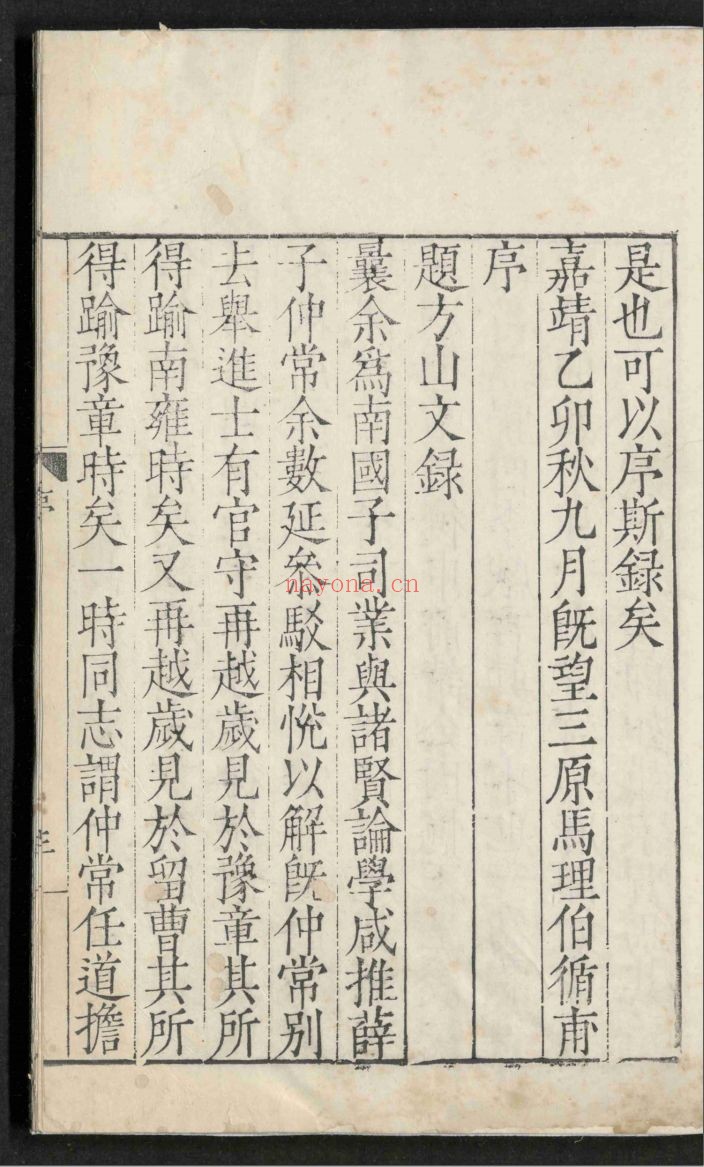 是也可以序斯録矣
嘉靖乙卯秋九月旣望三原馬理伯循甫
序
題方山文録
曩余爲南國子司業與諸賢論學咸推薛
子仲常余數延叅駁相悅以解旣仲常别
去舉進士有官守再越歲見於豫章其所
得踰南雍時矣又再越歲見於留曹其所
得踰豫章時矣一時同志謂仲常任道擔
序
nayona.cn